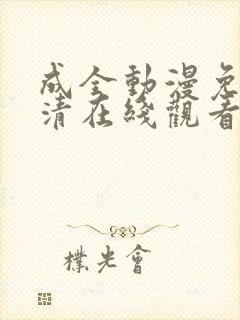 成全動漫免
清在綫觀看
樸光會